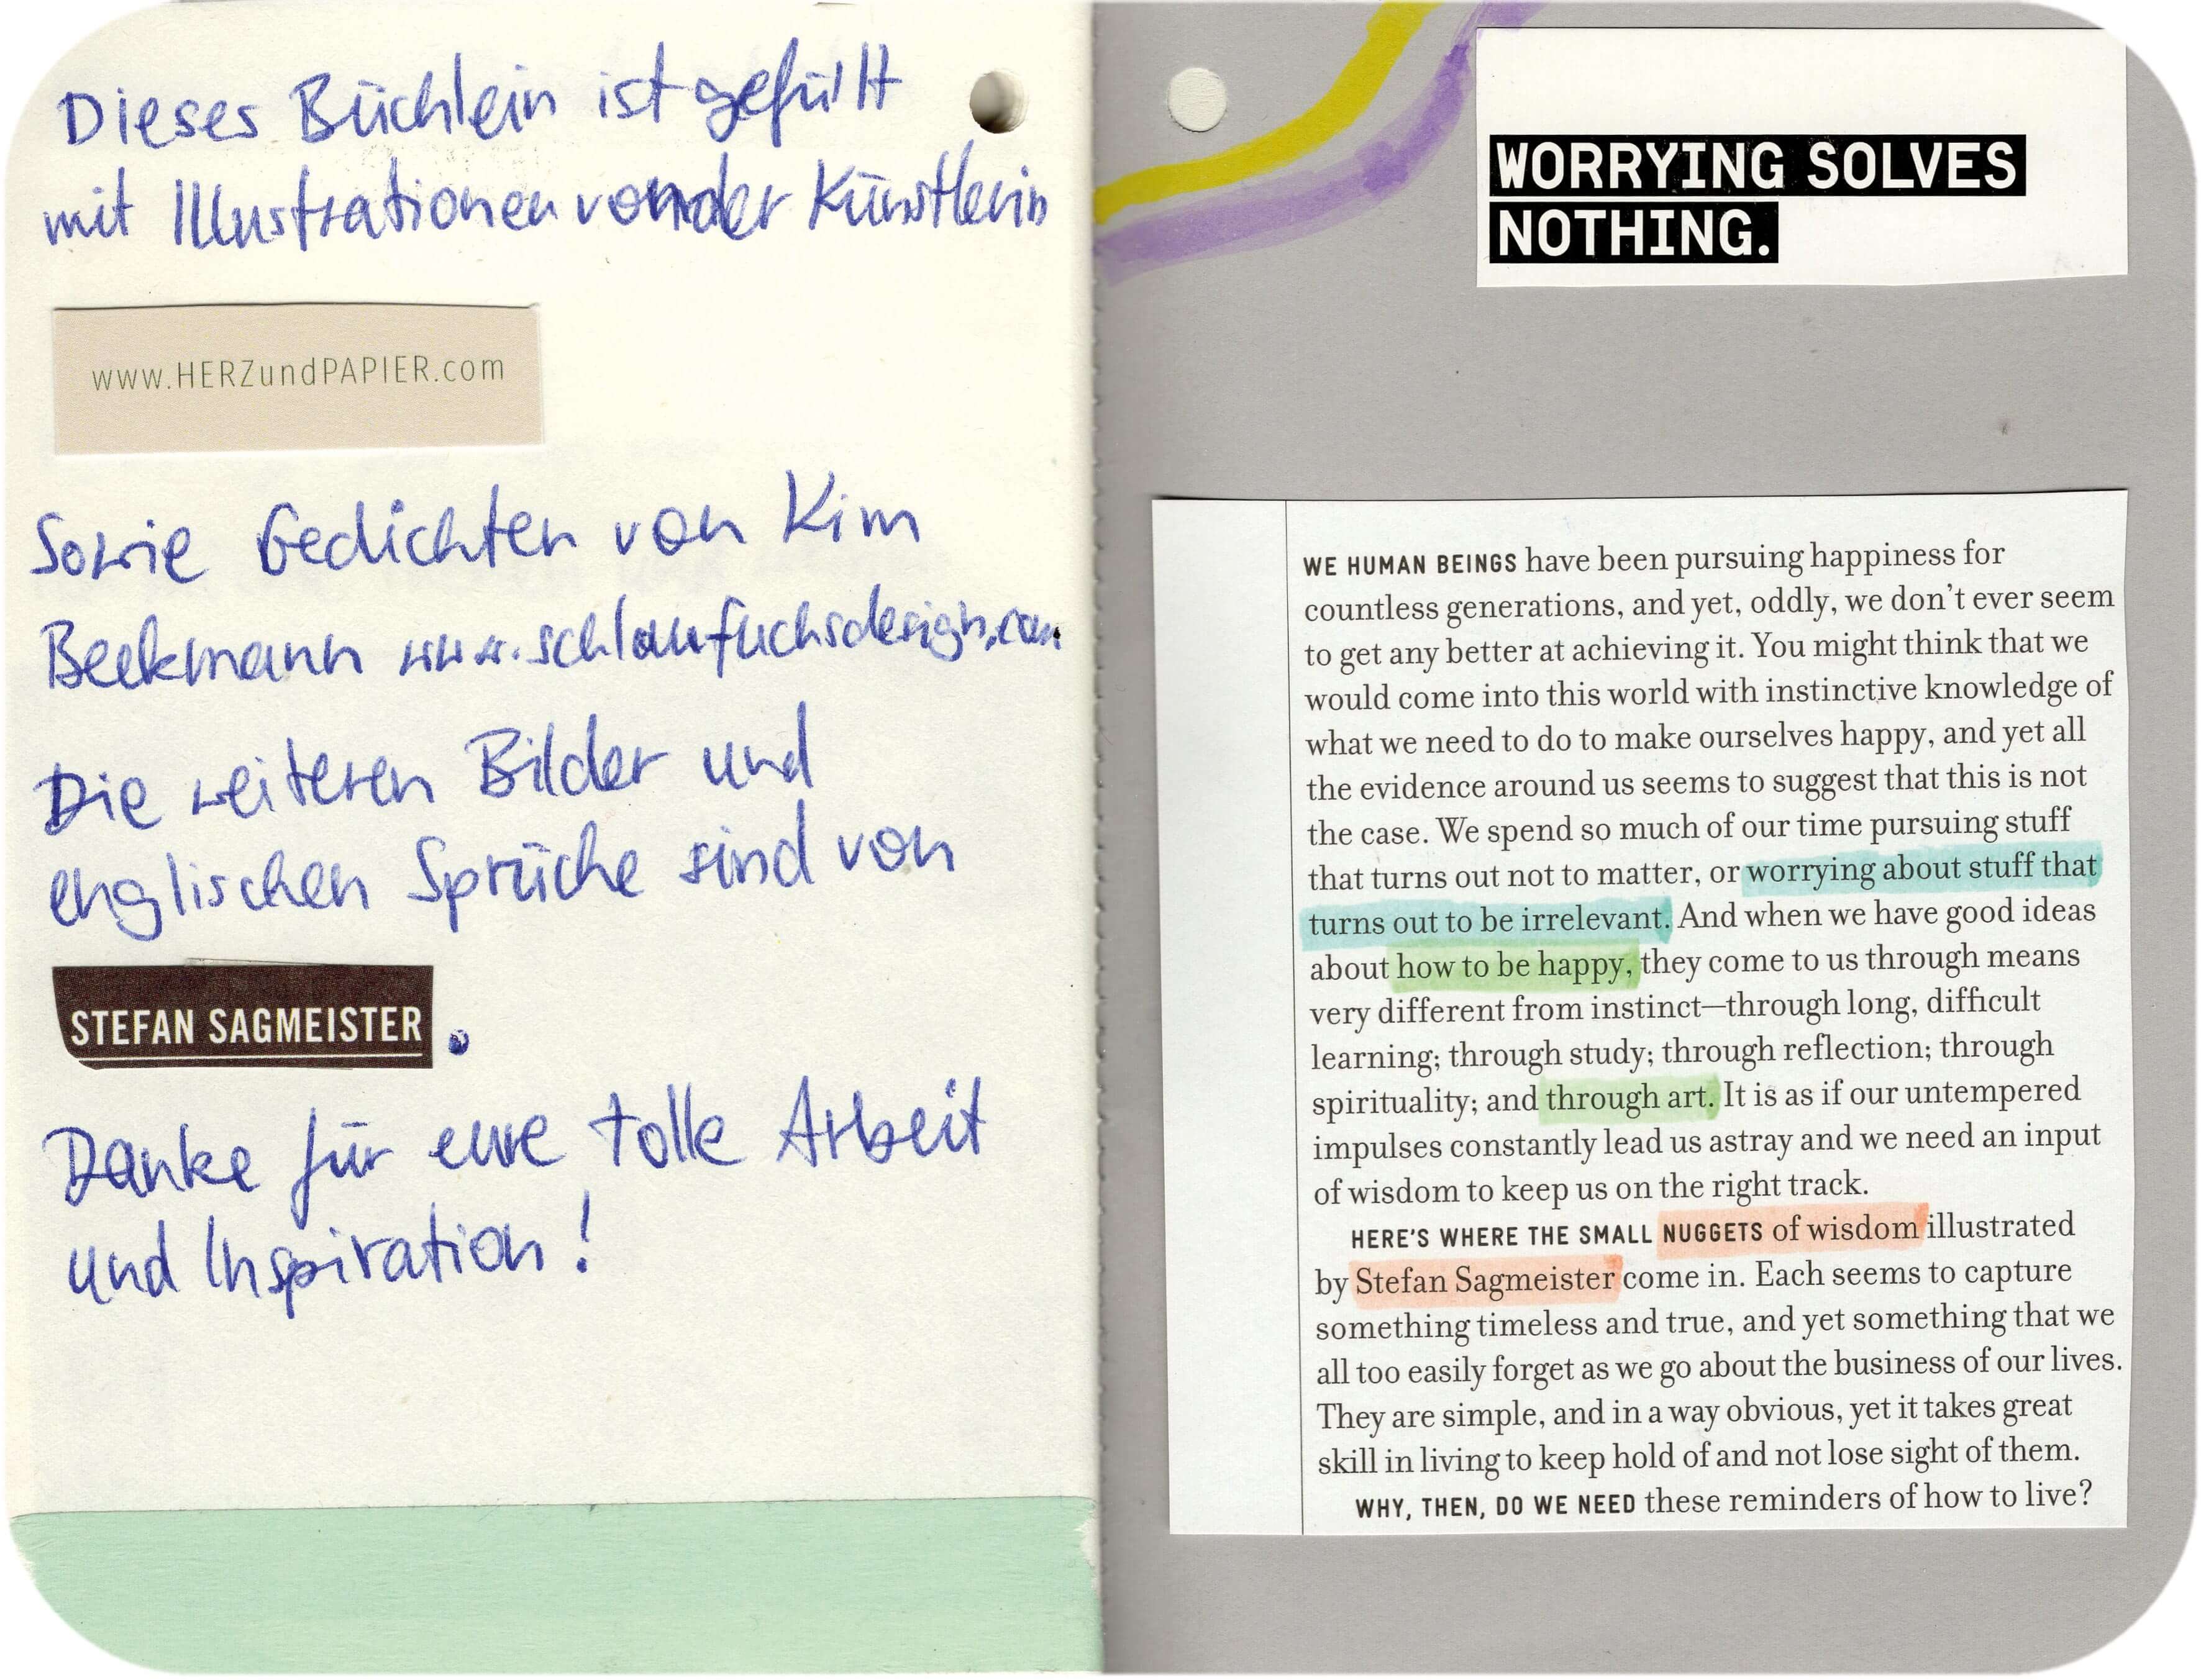 Dieses Büchlein ist gefüllt
mit Illustrationen von der Künstlerin
www.HERZundPAPIER.com
Sowie Gedichten von Kim
Beekmann www.schlaufuchsdesign.com
Die weiteren Bilder und
englischen Sprüche sind von
STEFAN SAGMEISTER.
Danke für eure tolle Arbeit
und Inspiration!
WORRYING SOLVES
NOTHING.
WE HUMAN BEINGS have been pursuing happiness for
countless generations, and yet, oddly, we don't ever seem
to get any better at achieving it. You might think that we
would come into this world with instinctive knowledge of
what we need to do to make ourselves happy, and yet all
the evidence around us seems to suggest that this is not
the case. We spend so much of our time pursuing stuff
that turns out not to matter, or worrying about stuff that
turns out to be irrelevant. And when we have good ideas
about how to be happy, they come to us through means
very different from instinct—through long, difficult
learning; through study; through reflection; through
spirituality; and through art. It is as if our untempered
impulses constantly lead us astray and we need an input
of wisdom to keep us on the right track.
HERE'S WHERE THE SMALL NUGGETS of wisdom illustrated
by Stefan Sagmeister come in. Each seems to capture
something timeless and true, and yet something that we
all too easily forget as we go about the business of our lives.
They are simple, and in a way obvious, yet it takes great
skill in living to keep hold of and not lose sight of them.
WHY, THEN, DO WE NEED these reminders of how to live?